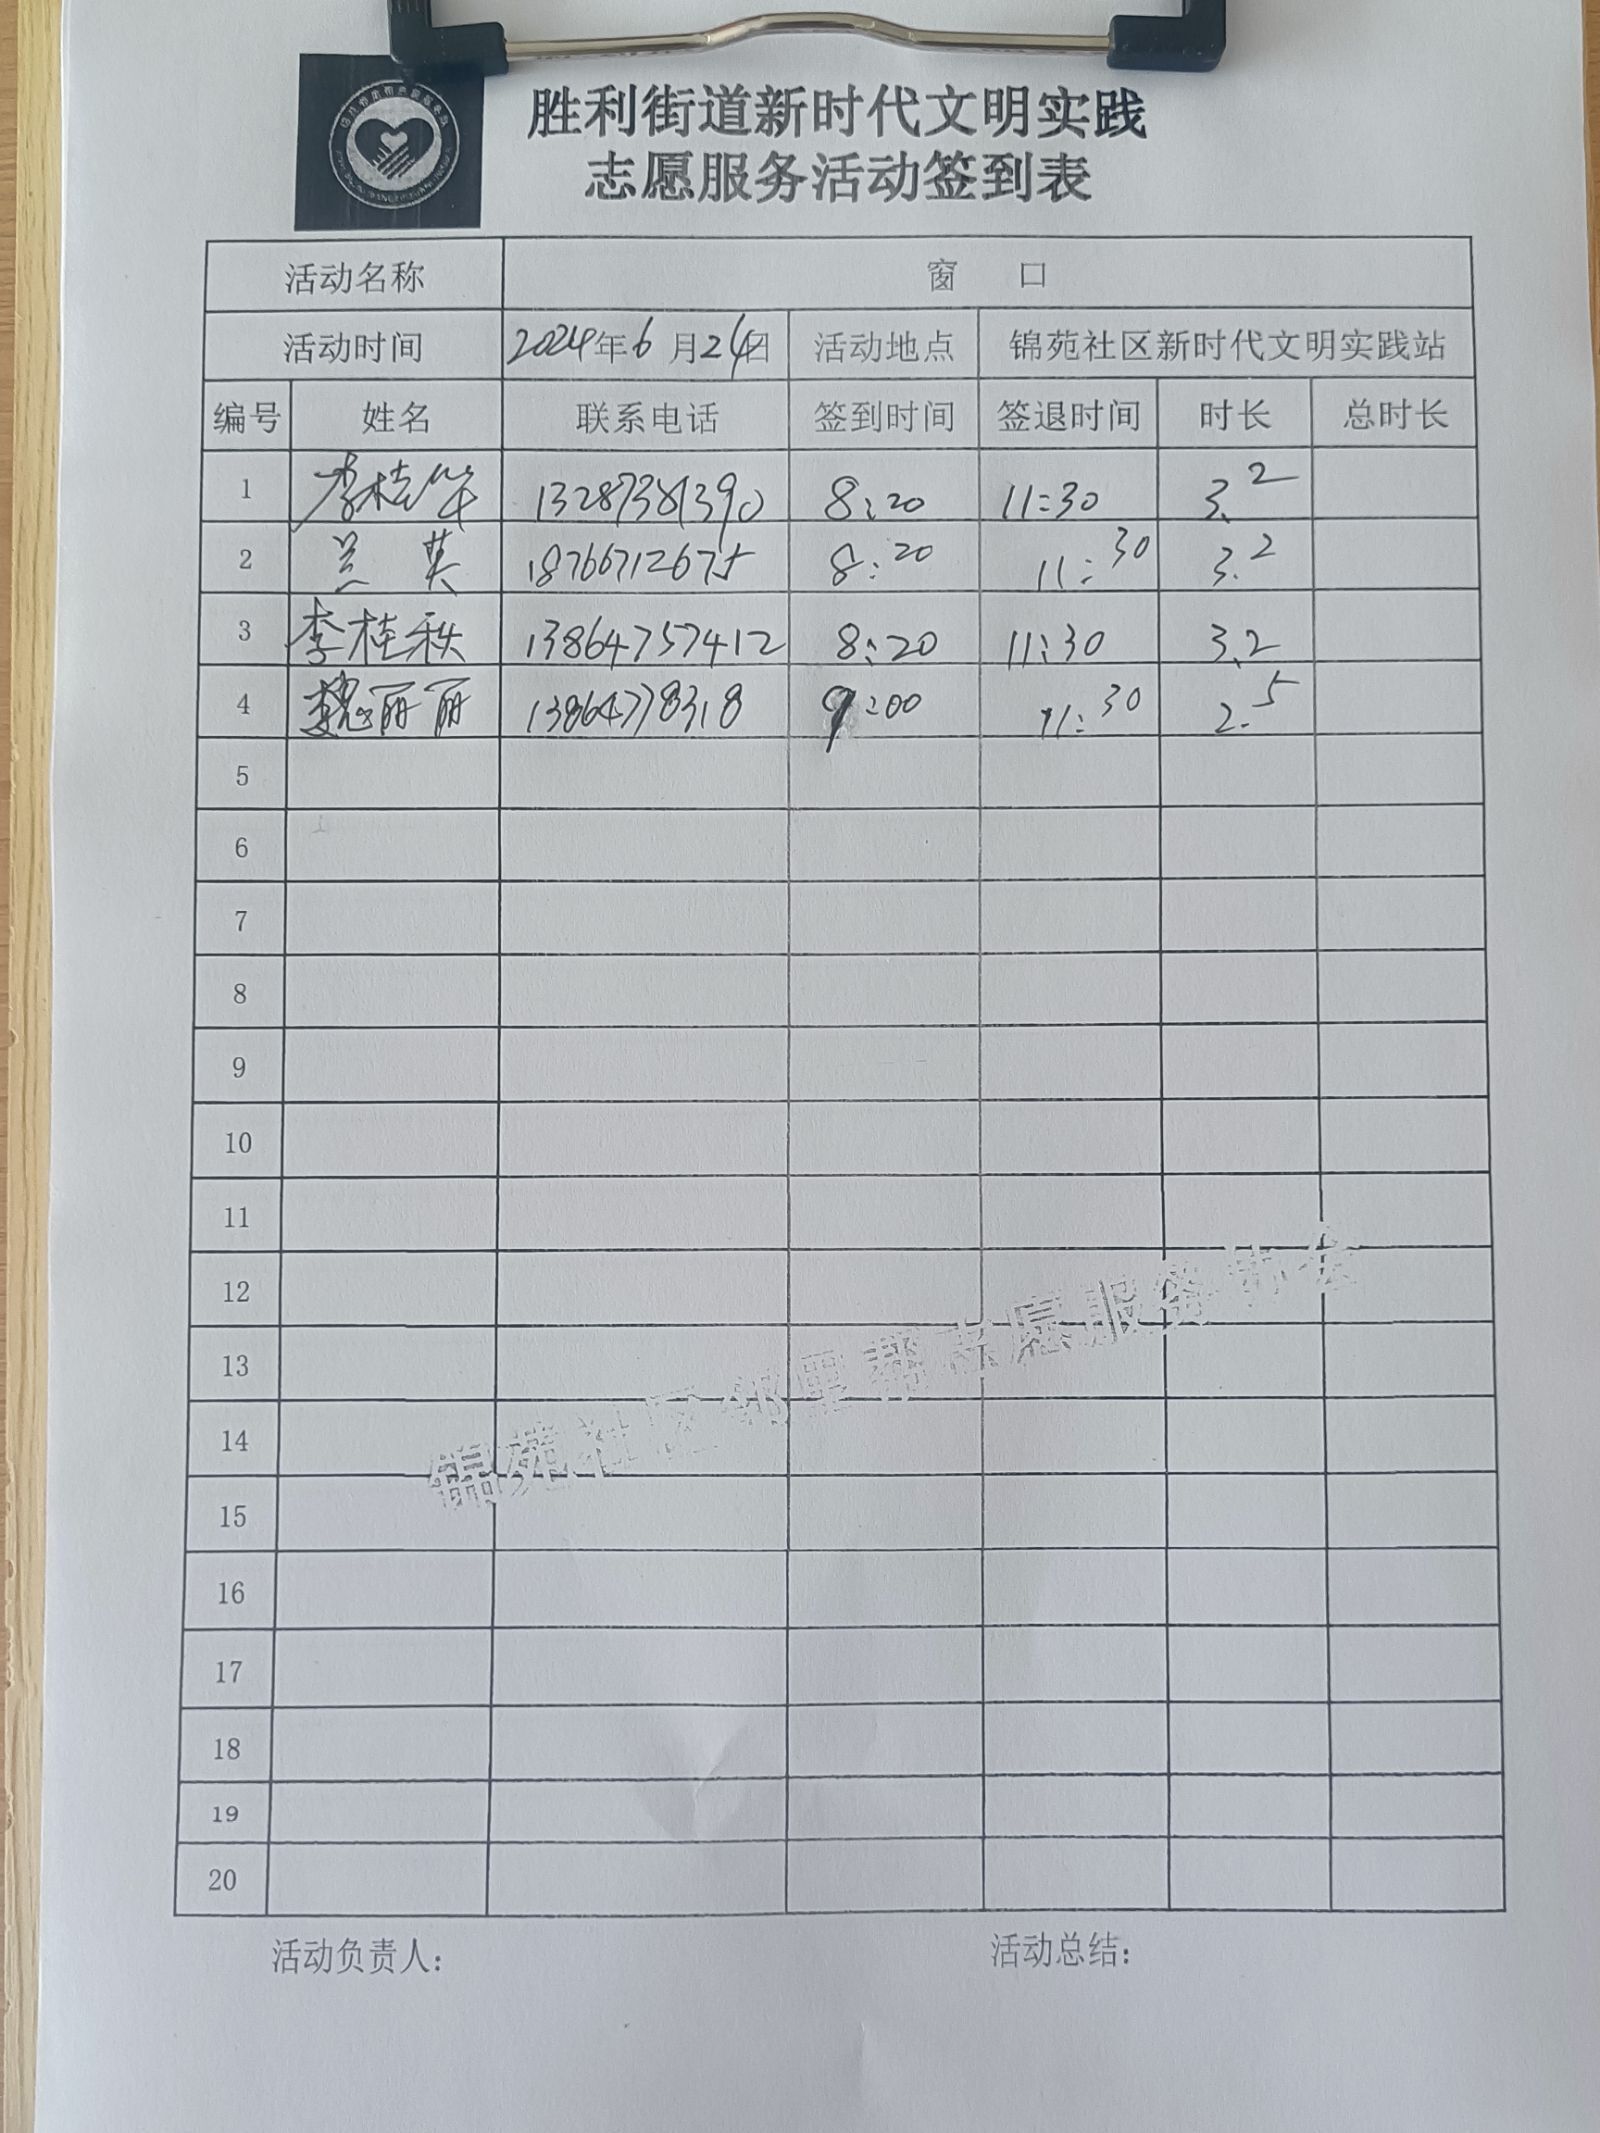 胜利街道新时代文明实践
志愿服务活动签到表
活动名称 窗 口
活动时间 2024年6月24日 活动地点 锦苑社区新时代文明实践站
编号 姓名 联系电话 签到时间 签退时间 时长 总时长
1 李桂华 13287381390 8:20 11:30 3.2
2 兰英 18766712675 8:20 11:30 3.2
3 李桂秋 13864757412 8:20 11:30 3.2
4 魏丽丽 13864778318 9:00 11:30 2.5
5
6
7
8
9
10
11
12
13
14
15
16
17
18
19
20
锦苑社区邻里帮志愿服务协会
活动负责人: 活动总结: